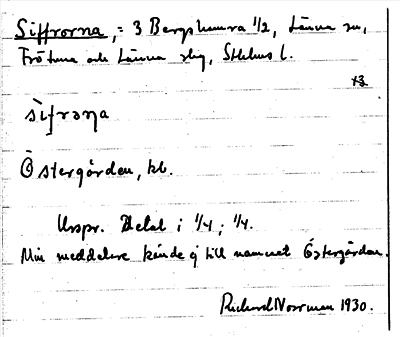 Siffrorna, = 3 Bergshamra 1/2, Länna sn,
Frötuna och Länna skg, Sthlms l.
×3
sìfroṇa
Östergården, kb.
Urspr. Detal i 1/4; 1/4.
Min meddelare kände ej till namnet Östergården.
Richard Norrman 1930.